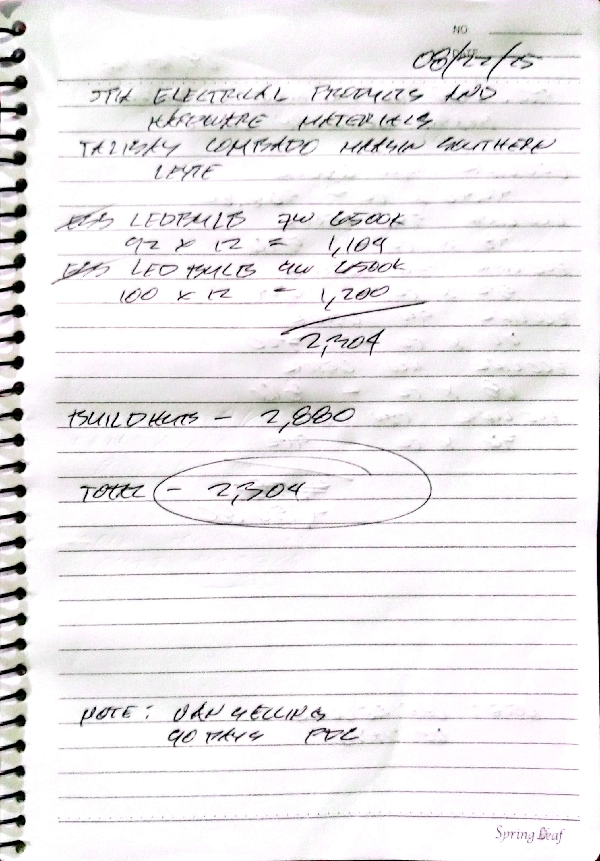 NO
08/22/25
JTH ELECTRICAL PRODUCTS AND
HARDWARE MATERIALS
COMBADO MAASIN SOUTHERN
LEYTE
LEDBULB 7W 6500K
92 x 12 = 1,104
LED BULB 9W 6500K
100 x 12 = 1,200
2,304
BUILDHUB - 2,880
TOTAL - 2,304
NOTE: VAN SELLING
90 DAYS PDC
Spring Leaf